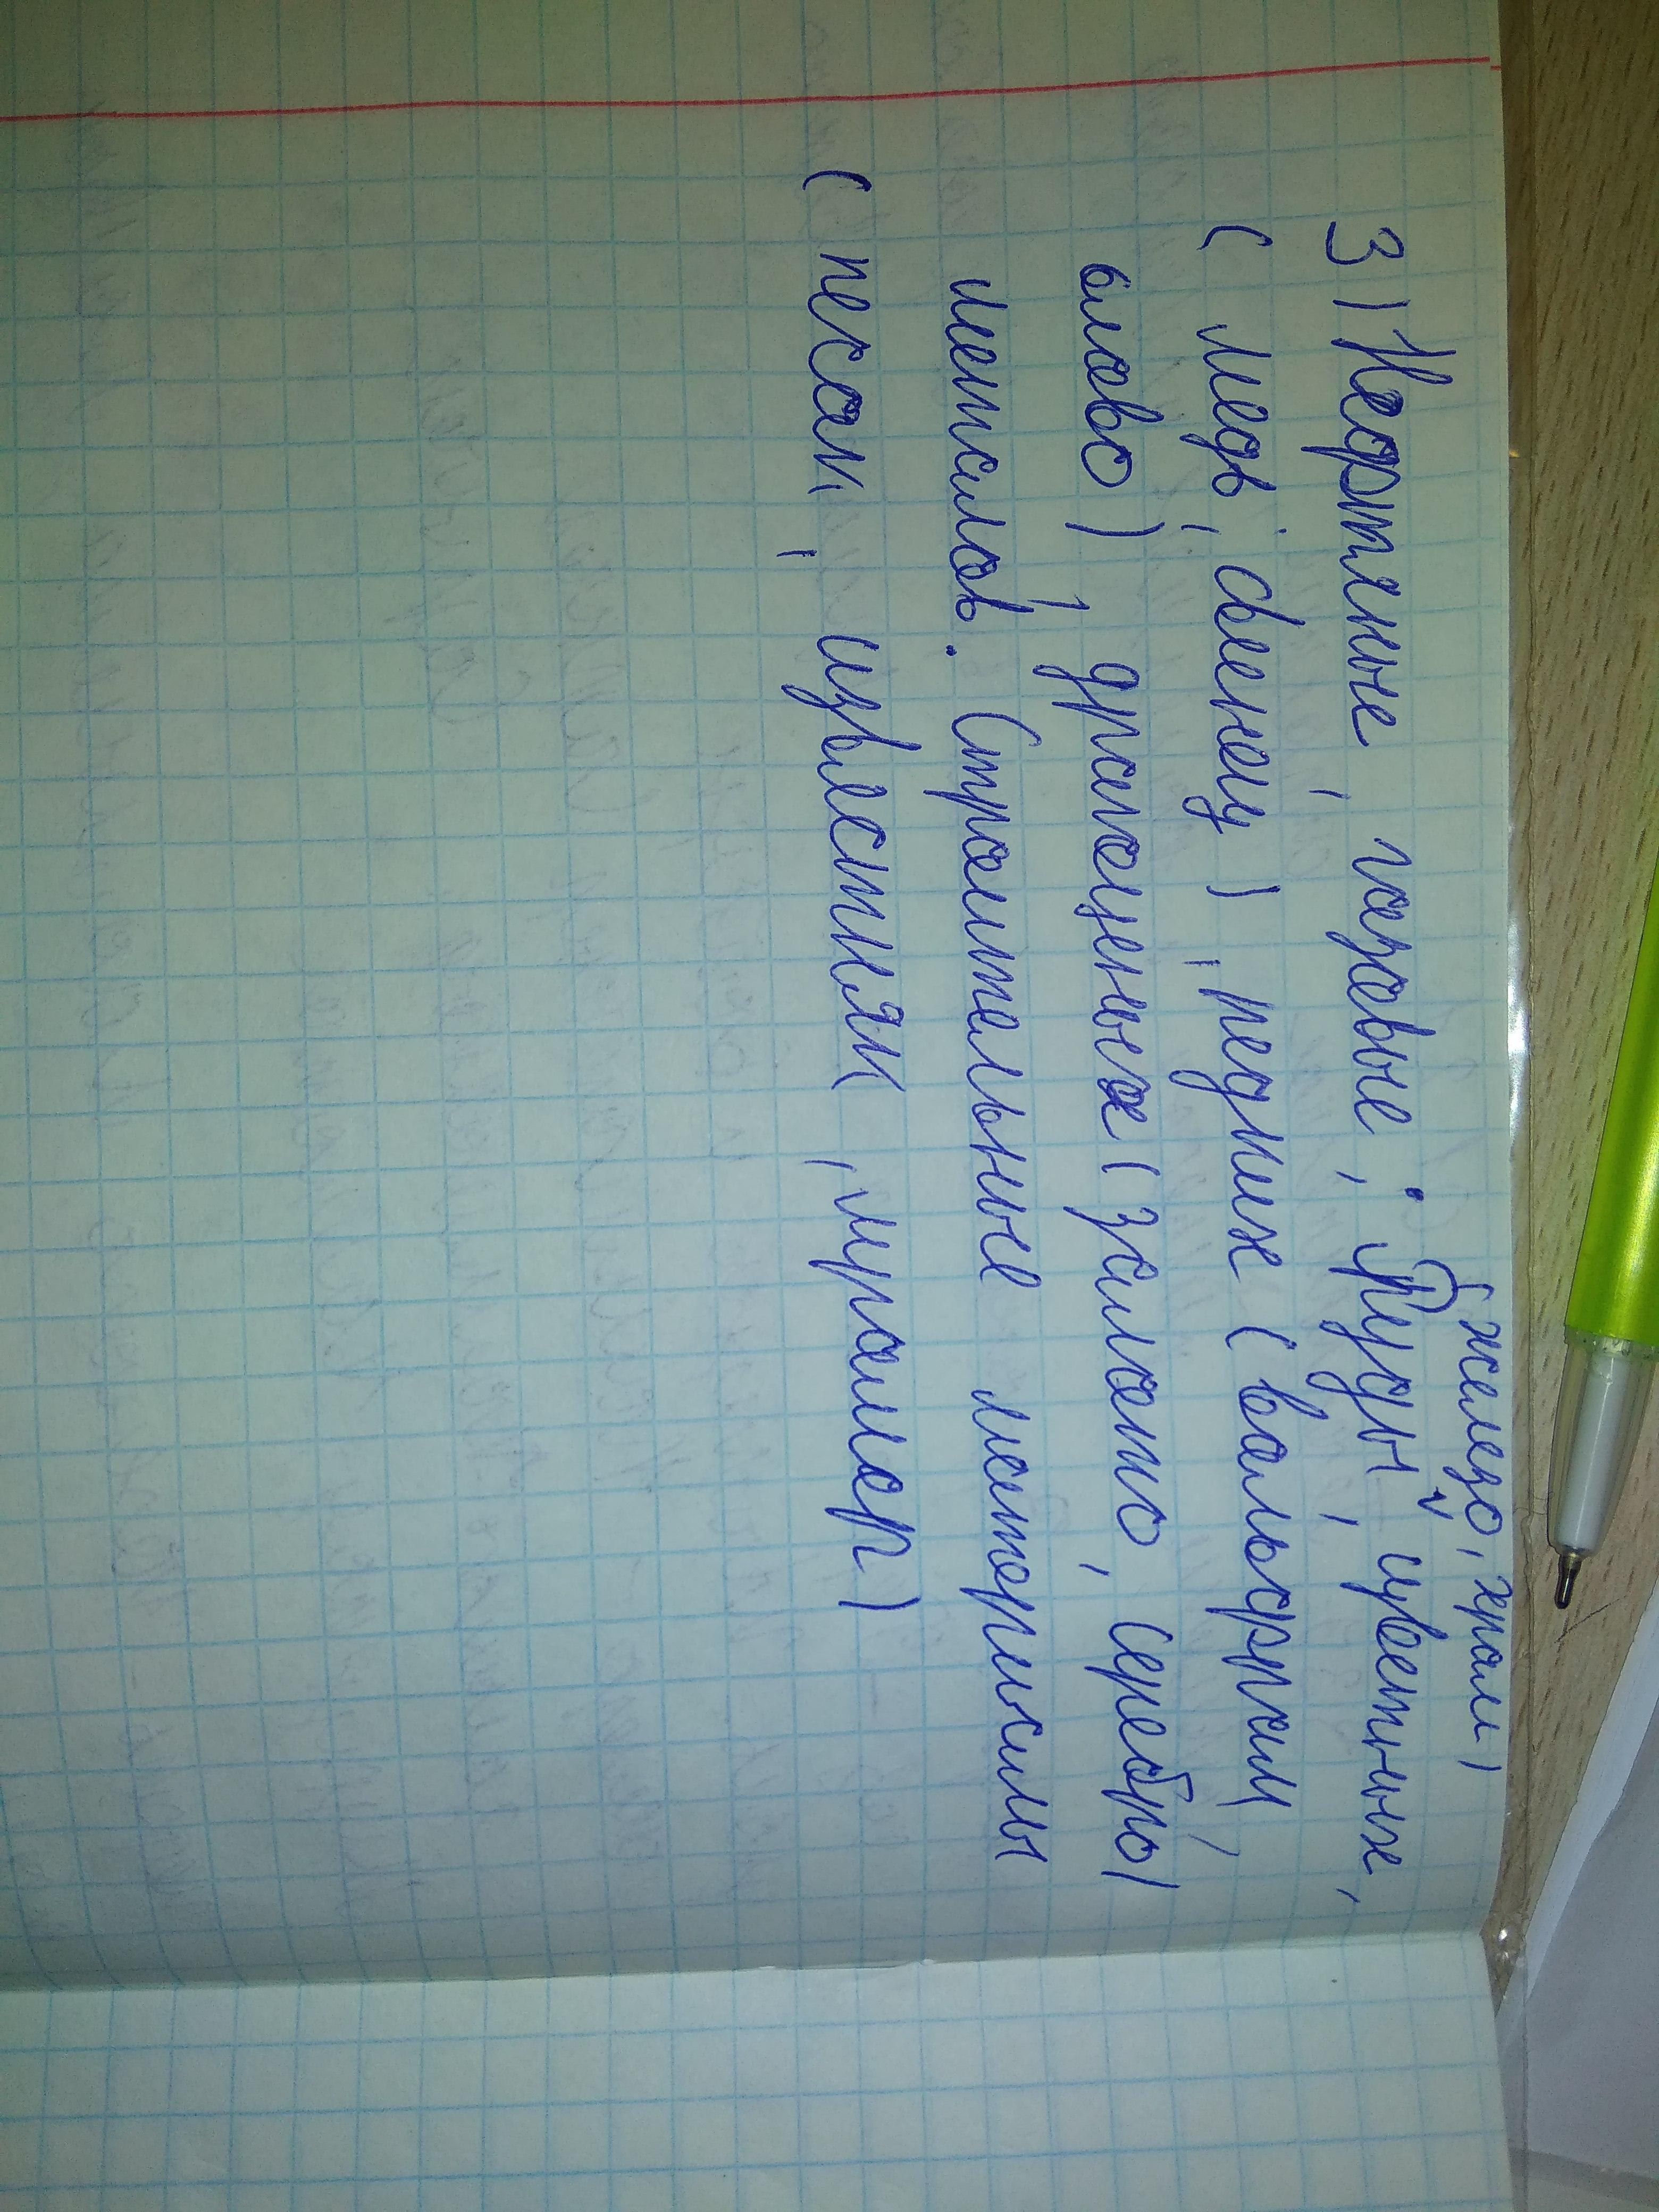 (железо, хром)
3) Нефтяные, газовые, Руды, цветных,
( медь, свенец), редких ( вольфрам,
олово), драгоценных ( золото, серебро)
металлов. Строительные материалы
( песок, известняк, мрамор)